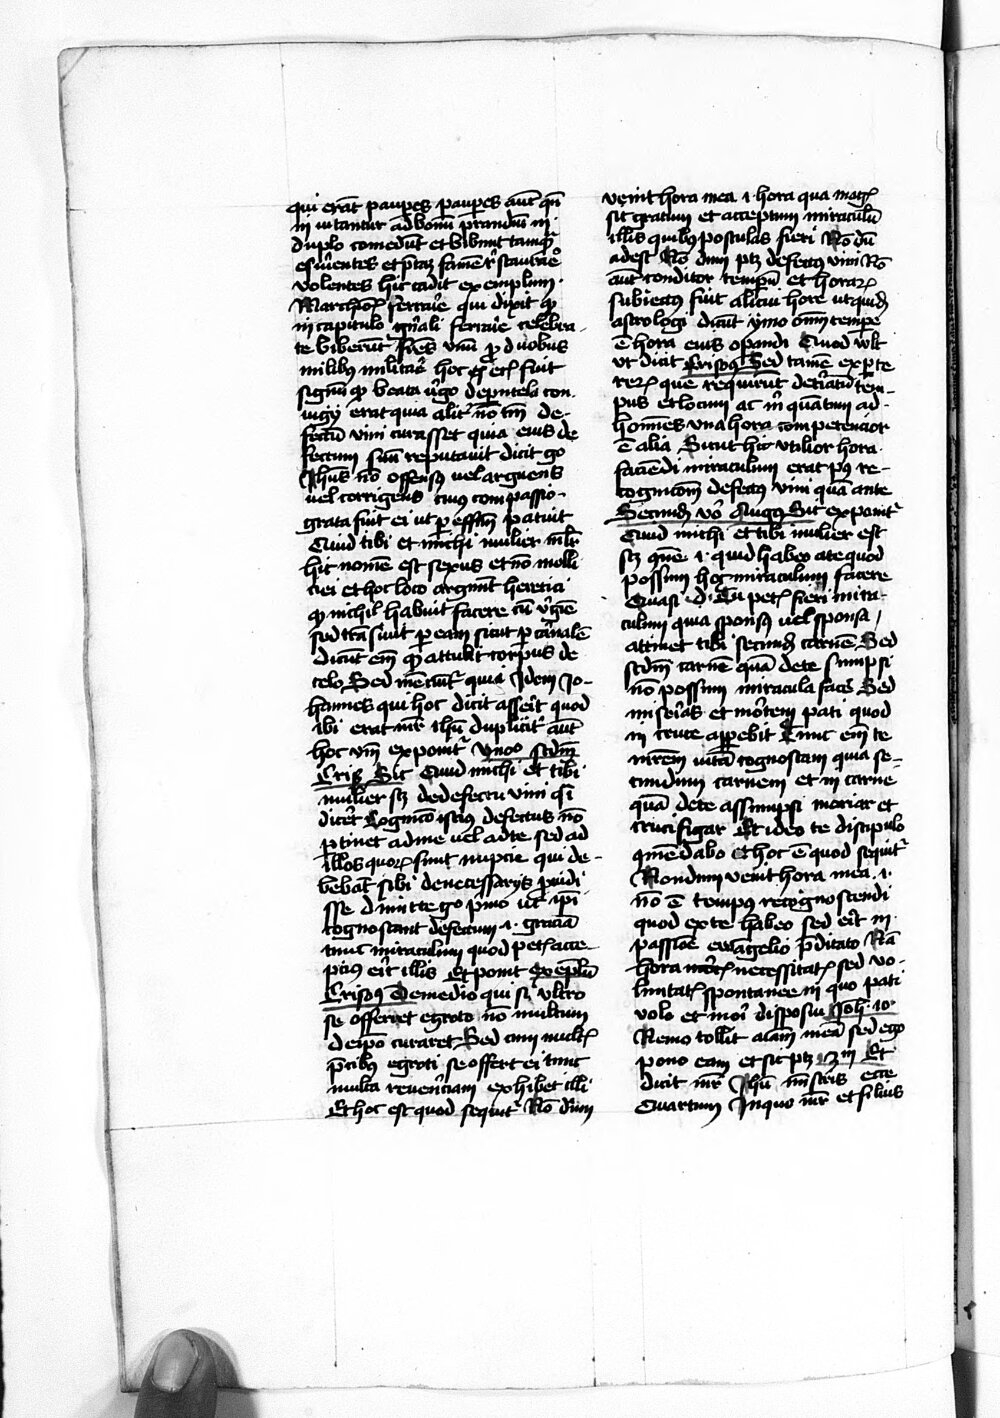 qui erāt paupes paupes aut qn̄
in uitantur ad bonū prandiū in
duplo comedūt et bibunt tamqͣ
esurientes et
volentes hic cadit exemplum ·
Marchōis ferrarie qui dixit qͥ
in capitulo gn̄ali ferrarie celebra-
te biberūt frēs vinū ꝓ duobus
milibus militaꝝ hoc etc̄ fuit
signū qͥ beata v̓go de pntela con-
iugij erat quia alit̓ nō tm̄ de-
fectū vini curasset quia eius de
fectum suū reputauit dicit gͦ
Ihūs nō offensus vel arguens
vel corrigens cuius compassio-
grata fuit ei ut ꝑ effm̄ patuit
Quid tibi et michi mulier ml̄r
hic nomē est sexus et nō molli
ciei et hoc loco argunt heretici
qͥ nichil habuit facere cū v̓gīe
sed trāsiuit ꝑ eam sicut ꝑ cānalē
dicūt em̄ qͥ attulit corpus de
celo Sed meciūt̓ quia Idem Jo-
hannes qui hoc dicit asserit quod
ibi erat mr̄ ihū duplicit̓ aūt
hoc vm̄ exponit̓ Vno scdm̄
Cris Sic Quid michi et tibi
mulier scꝫ de defectu vini qͥ
dicet Cognicō istius defectus nō
ꝑtinet ad me vel ad te sed ad
illos quoꝝ sunt nupcie qui de-
bebāt sibi de necessarijs ꝓuidi
sse dimitte gͦ pͥmo ut ipͥ
cognoscant defectum ·i· graciā
tunc miraculum quod petis acce-
pcius erit illis Et ponit exeplū
Crisos De medio qui si vltro
se offerret egroto nō multum
de ipo curaret Sed cum mult̓
p̄cibus egroti se offert ei tunc
multā reuerēciam exhibet illi
Et hoc est quod sequit̓ Nō dum
venit hora mea ·i· hora qua mag̓
sit gratum et acceptum miraculū
illis quibus postulas fieri Nō dū
adest Nō dum ptꝫ defectus vini Nō
aut̄ conditor tempoꝝ et horaꝝ
subiectus fuit alicui hore ut quidā
astrologi dicūt ymo omī tempe
ē hora eius opandi Quod vult
ut dicit Crisos Sed tamē ex ꝑte
reꝝ que requirūt
pus et locum ac in quātum ad
homīes vna hora competencior
ē alia Sicut hic vtilior hora
faciēdi miraculum erat pꝰ re-
cognicōm defectus vini quā ante
Secund̄ vō Augus Sic exponit̓
Quid michi et tibi mulier est
scꝫ ·i· quid habeo a te quod
possum hoc miraculum facere
Quasi ·d· Tu petis fieri mira-
culum quia sponsus vel sponsa
attinet tibi secund̄ carnē Sed
scdm̄ carnē quā de te sumpsi
nō possum miracula facē Sed
miserias et mortem pati quod
in cruce apparebit Tunc em̄ te
mr̄em meā cognoscam quia se-
cundum carnem et in carne
quā de te assumpsi moriar et
crucifigar Et ideo te discipulo
cōmēdabo Et hoc ē quod sequit̓
Nondum venit hora mea ·i·
nō ē tempus recognoscendi
quod ex te habeo sed erit in
passiōe ewangelio p̄ditato Nā
hora mortis necessitatis sed vo-
luntatis spontanee in quo pati
volo et mori disposui Joh· 10·
Nemo tollit aīam meā sed ego
pono eam et sic ptꝫ Et
dicit mr̄ Ihū mīstris ecce
Quartum In quo mr̄ et filius